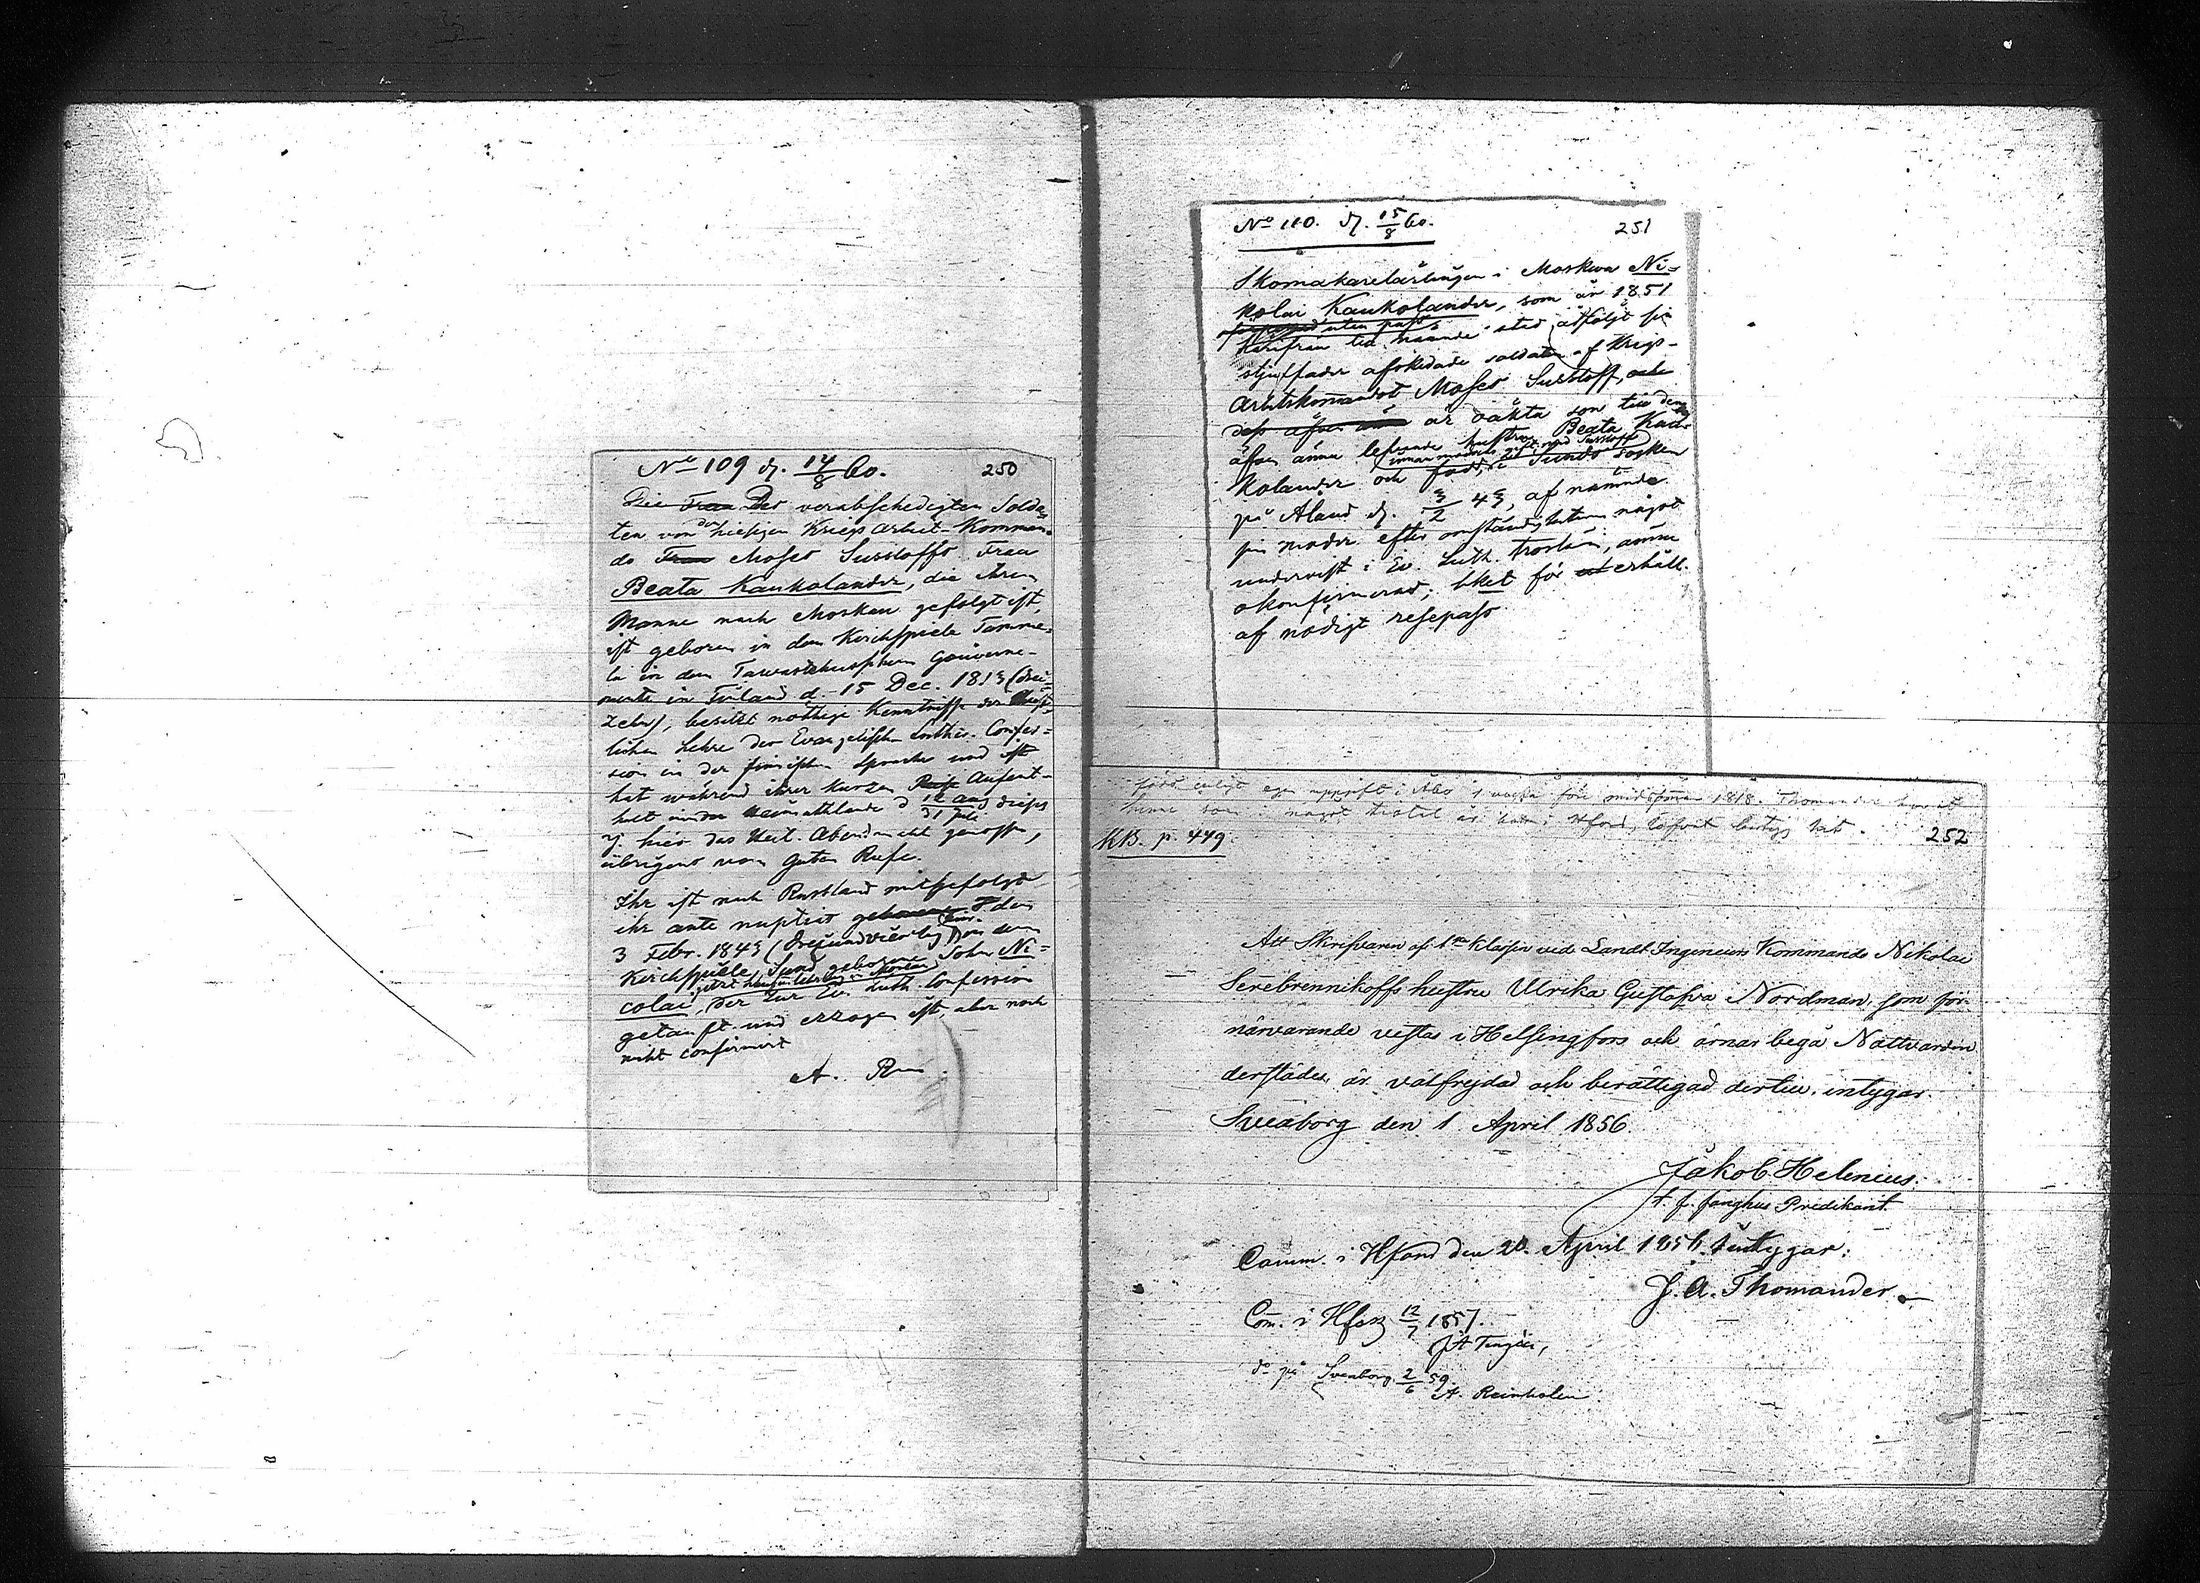 No 109 d. 14/8 60. 250
Die Frau Des verabschedigten Solda-
ten von den hiesigen Kriegs Arbeit-Komman-
do Frau Moses Susstoffs Frau
Beata Kaukolander, die ihren
Manne nach Moskau gefolgt ist,
ist geboren in dem Kirchspiele Tamme-
la in dem Tawastehusschen Gouverne-
mente in Finland d. 15 Dec. 1813 (drei-
zehn), besitzt nöthige Kenntnisse der Christ-
lichen Lehre der Evangelisch Luther. Confes-
sion in der finnischen Sprache und ist
hat während ihrer kurzen Reise Aufent-
halt in der Heimathlande d 31 Juli dieses
J. hier das Heil. Abendmahl genossen,
übrigens von guten Rufe.
Ihr ist nach Russland mitgefolgt
ihr ante nuptias geborene den
3 Febr. 1843 (dreiundvierzig) in dem
Kirchspiele Sund geborene Sohn Ni-
colai, der zur Ev. Luth. Confession
getauft und erzogen ist, aber noch
nicht confirmirt
A. R
No 110. d. 15/8 60. 251
Skomakarelärlingen i Moskwa Ni-
kolai Kaukolander, som år 1851
härifrån till nämnde stad åtföljt sin
stjuffader afskedade soldaten af Krigs-
Arbetskomandot Moses Susstoff, och
dess äfven är oäkta son till dens
äfven ännu lefvande hustru Beata Kau-
kolander och född i Sunds socken
på Åland d. 3/2 43, af nämnde
sin moder efter omständigheterna något
undervist i Ev. Luth. trosläran, ännu
okonfirmerad; hket för att erhåll.
af nödigt resepass
född enligt egen uppgift i Åbo 1 vecka före midsommar 1818. Thomander
252
KB. p. 449.
Att Skrifvaren af 1sta Klassen vid Landt-Ingenieurs Kommando Nikolai
Serebrennikoffs hustru Ulrika Gustafva Nordman, som för-
närvarande vistas i Helsingfors och ärnar begå Nattvarden
derstädes, är välfrejdad och berättigad dertill, intygar.
Sveaborg den 1 April 1856.
Jakob Helenius.
t. f. fånghus Predikant.
Comm. i Hfors den 20 April 1856, intygar:
J. A. Thomander
Com. i Hfors 12/7 1857.
do på Sveaborg 2/6 59.
A. Reinholm